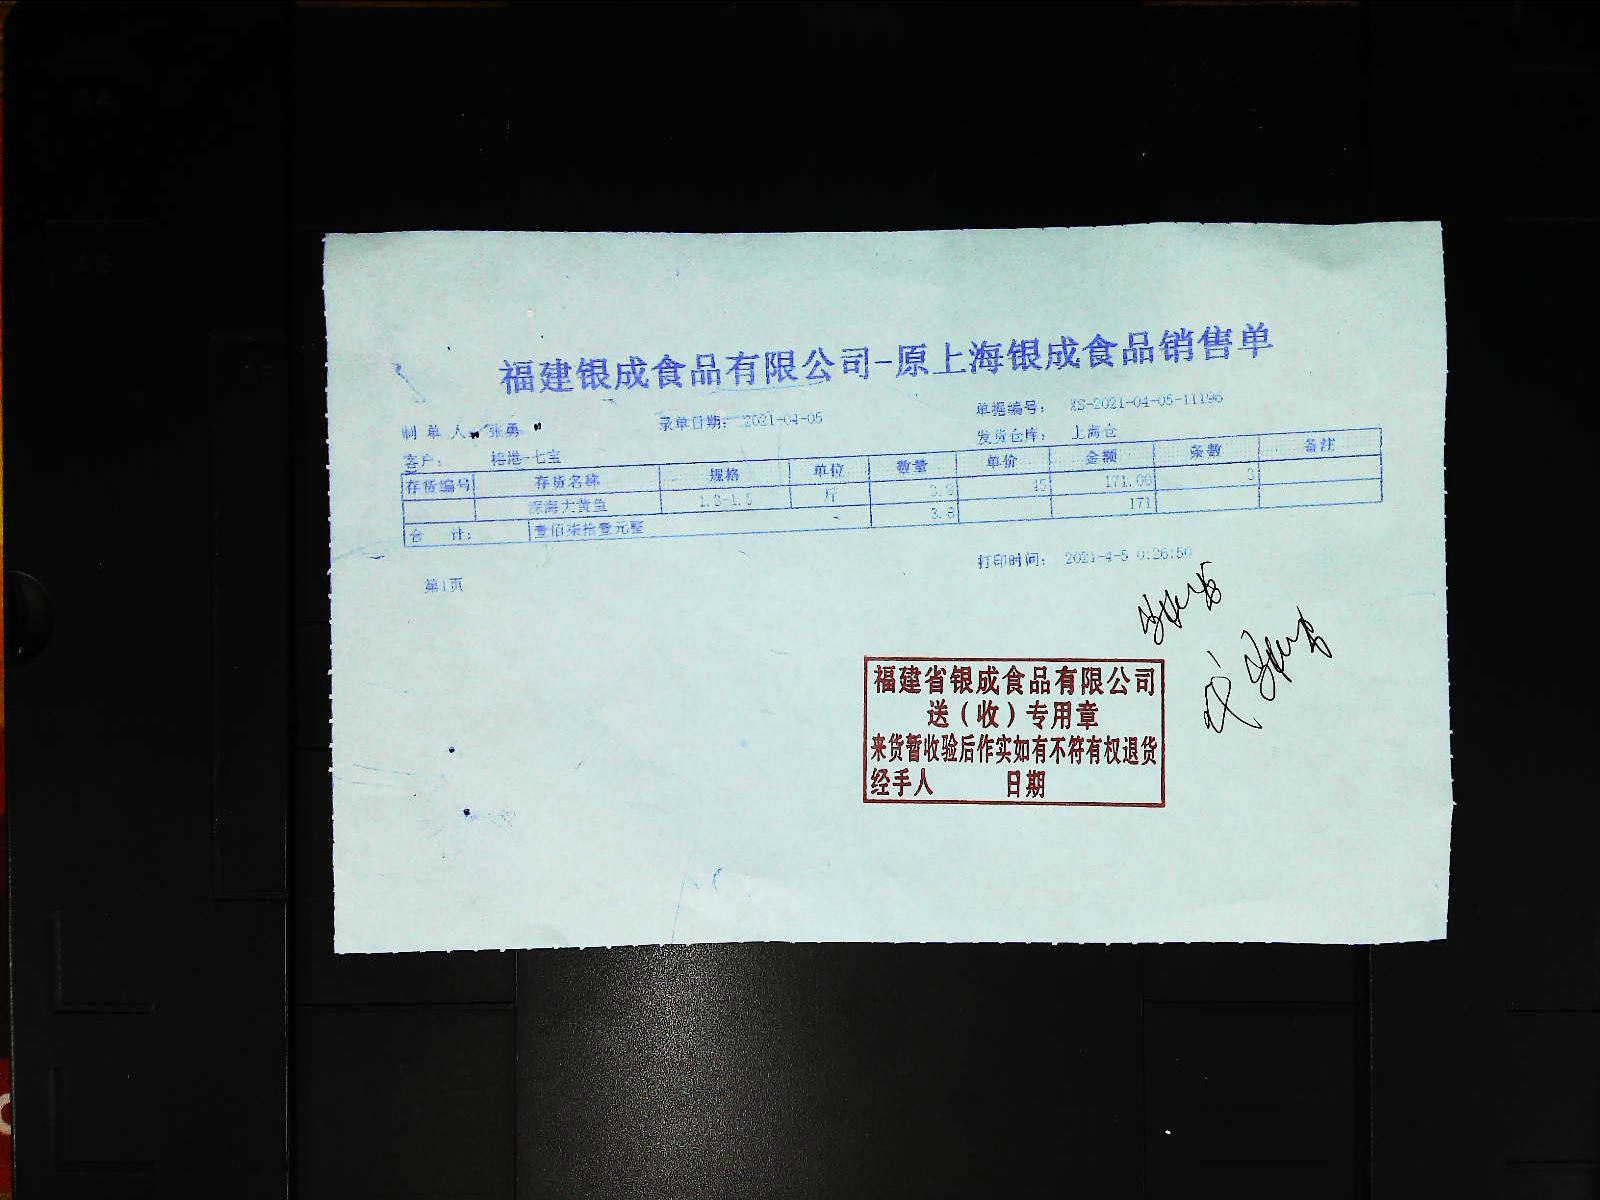 福建银成食品有限公司-原上海银成食品销售单
制 单 人: 张勇 录单日期: 2021-04-05 单据编号: XS-2021-04-05-11196
客户: 榕港-七宝 发货仓库: 上海仓
存货编号 存货名称 规格 单位 数量 单价 金额 条数 备注
深海大黄鱼 1.3-1.5 斤 3.8 45 171.00 3
合 计: 壹佰柒拾壹元整 3.8 171
打印时间: 2021-4-5 0:26:50
第1页
福建省银成食品有限公司
送（收）专用章
来货暂收验后作实如有不符有权退货
经手人 日期